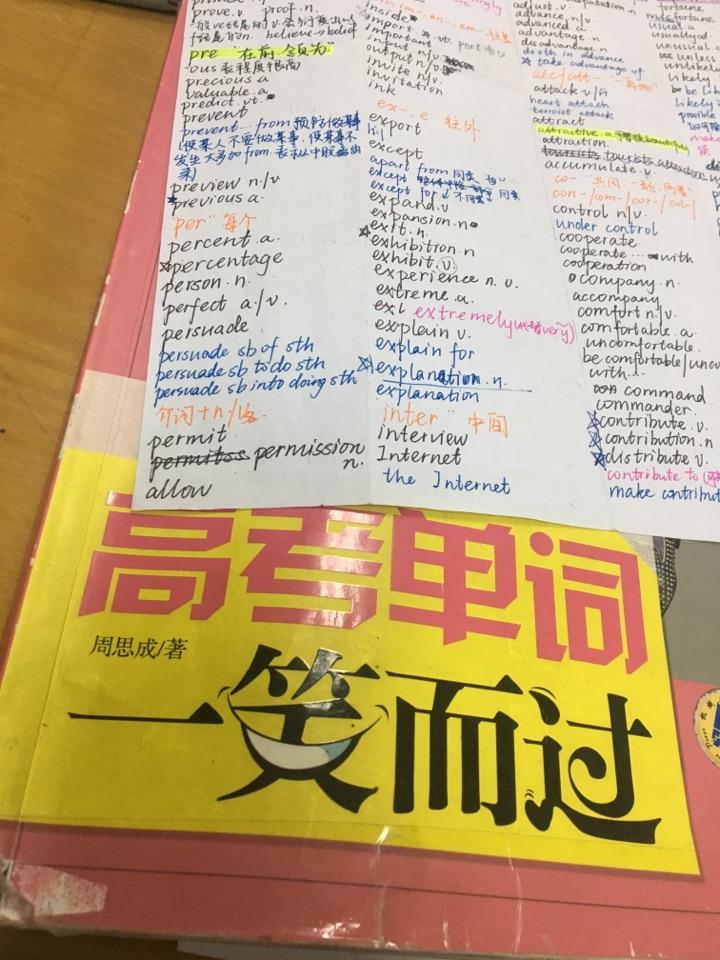 prove.v proof.n.
believe → belief
pre "在前,领为"
ous表程度很高
precious.a
valuable.a
predict.vt.
prevent
prevent...from 预防做某事
(使某人不要做某事,使某事不
发生大多加from
来)
preview n/v
previous a.
"per" 每个
percent.a.
☆percentage
person.n.
perfect a/v.
persuade
persuade sb of sth
persuade sb to do sth
persuade sb into doing sth
介词+n/
permit
permission n.
allow
inside
import vt.
important
input n/v
output n/v.
invite n/v
invitation
ink.
ex-, e 往外
export
except
apart from
except
except for
expand.v
expansion.n
☆exit.n.
exhibition.n
exhibit v.
experience n. v.
extreme.a.
extremely
explein v.
explain for
☆explanation.n.
explanation
inter" 中间
interview
Internet
the Internet
adjust.v.
advance n/v.
advanced a.
advantage.n
disadvantage.n
do sth in advance
☆ take advantage of
attack v/n
heart attack
terroist attack
attract
attractive a.
attraction.
tourists attraction
accumulate.v.
con-/com-/cor-/col-
control n/v.
under control
cooperate
cooperate ... with
cooperation.
company.n.
accompany
comfort n/v.
comfortable.a.
uncomfortable.
be comfortable/
with...
command
commander.
☆contribute.v.
☆contribution.n
☆distribute v.
contribute to
make
fortune
misfortune
usual.a
unusual.
unless
unlikely
likely
be
likely
make
高考单词
周思成/著
一笑而过